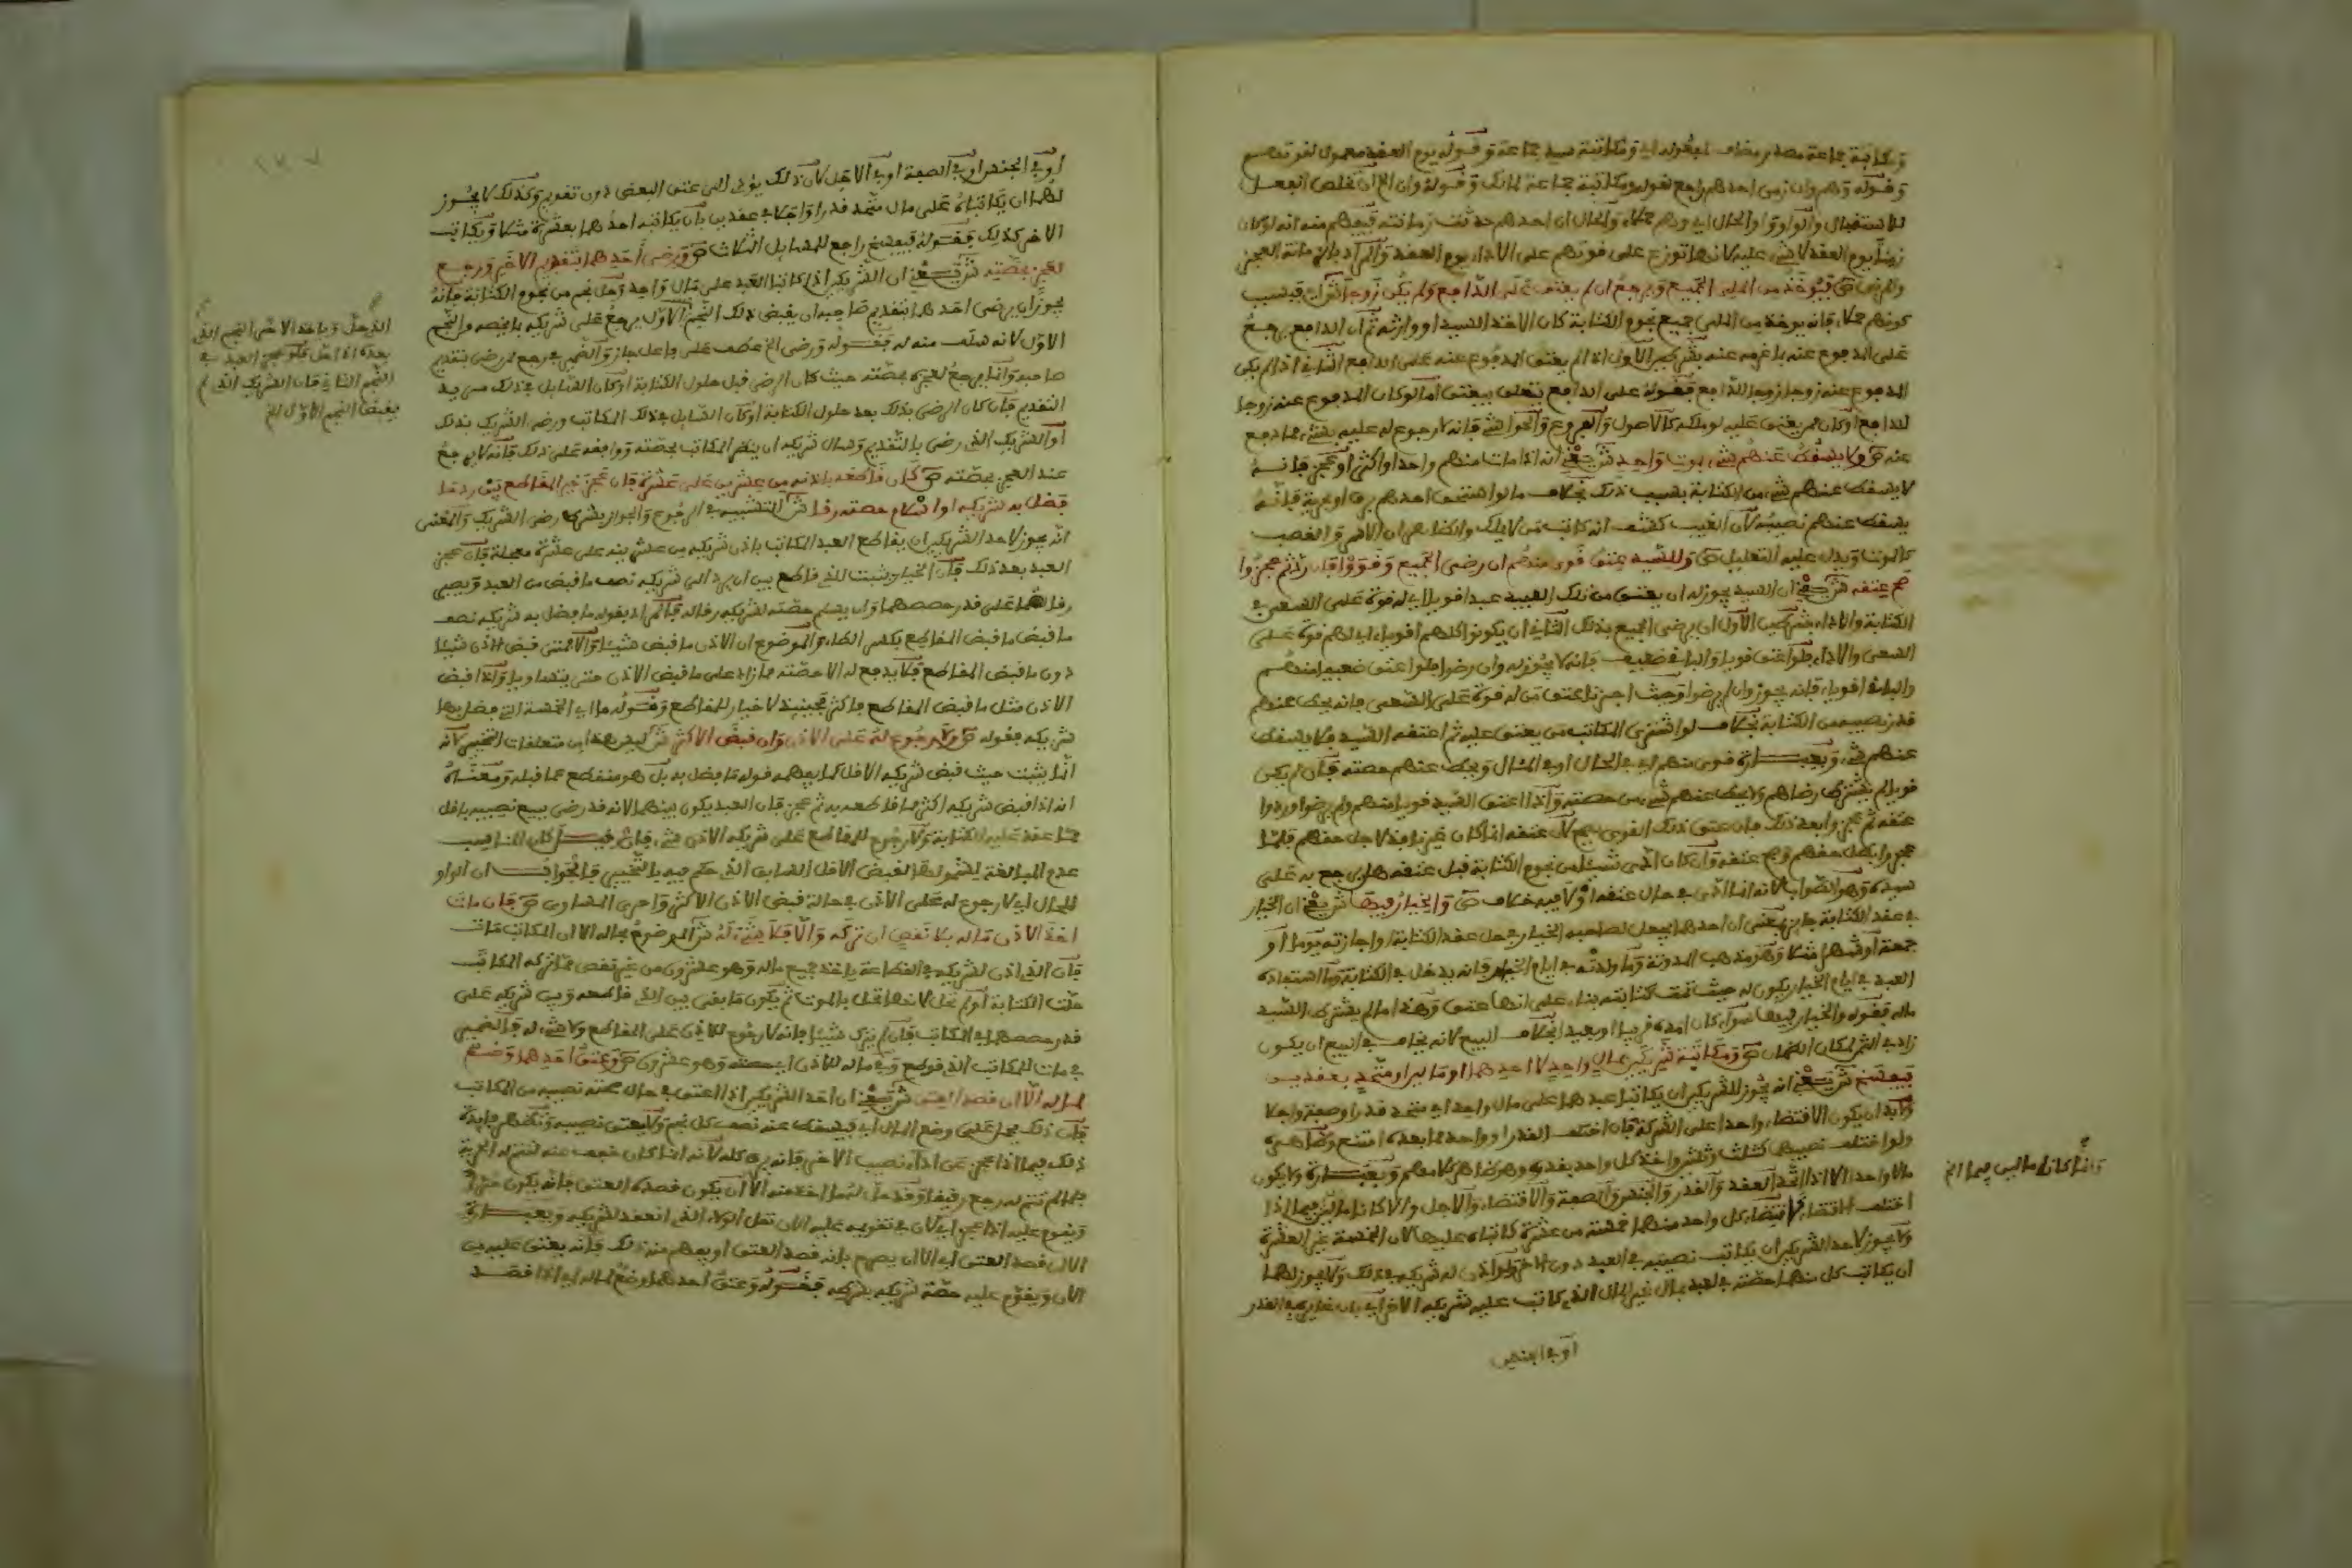 ومكاتبة جماعة مصدر مضاف لمفعوله اي ومكاتبة سيد جماعة وقوله يوم العقد معمول لقوتهم
وقوله وهم وان زمن احدهم راجع لقوله ومكاتبة جماعة لمالك وقوله وان الخ ان تخلص الفعل
للاستقبال والواو واو الحال اي وهم حملاء والحال ان احدهم حدثت زمانته فيفهم منه انه لو كان
زمنا يوم العقد لا شيء عليه لانها توزع على قوتهم على الاداء يوم العقد والمراد بالزمانة العجز
ص فيؤخذ من الملي الجميع ويرجع ان لم يعتق على الدافع ولم يكن زوجا ش اي فبسبب
كونهم حملاء فانه يؤخذ من الملي جميع نجوم الكتابة كان الاخذ السيد او وارثه ثم ان الدافع يرجع
على المدفوع عنه بما غرمه عنه بشرطين الاول اذا لم يعتق المدفوع عنه على الدافع الثاني اذا لم يكن
المدفوع عنه زوجا للدافع فقوله على الدافع يتعلق بيعتق اما لو كان المدفوع عنه زوجا
للدافع او كان ممن يعتق عليه لو ملكه كالاصول والفروع والحواشي فانه لا رجوع له عليه بشيء مما دفع
عنه ص ولا يسقط عنهم شيء بموت واحد ش يعني انه اذا مات منهم واحد او اكثر او عجز فانه
لا يسقط عنهم شيء من الكتابة بسبب ذلك بخلاف ما لو استحق احدهم برق او بحرية فانه
يسقط عنهم نصيبه لان الغيب كشف انه كاتب من لا يملك والظاهر ان الاسر والغصب
كالموت ويدل عليه التعليل ص وللسيد عتق قوي منهم ان رضي الجميع وقووا فان رد ثم عجزوا
صح عتقه ش يعني ان السيد يجوز له ان يعتق من تلك العبيد عبدا قويا اي له قوة على السعي في
الكتابة والاداء بشرطين الاول ان يرضى الجميع بذلك الثاني ان يكونوا كلهم اقوياء اي لهم قوة على
السعي والاداء فلو اعتق قويا والباقي ضعيف فانه لا يجوز له وان رضوا فلو اعتق ضعيفا منهم
والباقي اقوياء فانه يجوز وان لم يرضوا وحيث اجزنا عتق من له قوة على السعي فانه يحط عنهم
قدر نصيبه من الكتابة بخلاف لو اشترى المكاتب من يعتق عليه ثم اعتقه السيد فلا يسقط
عنهم شيء وبعبارة قوي منهم اي في الحال او في المآل ويحط عنهم حصته فان لم يكن
قويا لم يشترط رضاهم ولا يحط عنهم شيء من حصته واذا اعتق السيد قويا منهم ولم يرضوا وردوا
عتقه ثم عجزوا بعد ذلك فان عتق ذلك القوي يصح لان عتقه انما كان غير نافذ لاجل حقهم فلما
عجزوا بطل حقهم وصح عتقه وان كان ادى شيئا من نجوم الكتابة قبل عتقه هل يرجع به على
سيده وهو الصواب لانه انما ادى في حال عتقه او لا فيه خلاف ص والخيار فيها ش يعني ان الخيار
في عقد الكتابة جائز بمعنى ان احدهما يجعل لصاحبه الخيار في حل عقد الكتابة او اجازته يوما او
جمعة او شهرا مثلا وهو مذهب المدونة وما ولدته في ايام الخيار فانه يدخل في الكتابة وما استفاده
العبد في ايام الخيار يكون له حيث تمت كتابته بناء على انها عتق وهذا ما لم يشترط السيد
ماله فقوله والخيار فيها سواء كان امده قريبا او بعيدا بخلاف البيع لانه يخاف في البيع ان يكون
زاد في الثمن لمكان الضمان ص ومكاتبة شريكين بمال واحد لا احدهما او بمالين او متحد بعقدين
فيفسخ ش يعني انه يجوز للشريكين ان يكاتبا عبدهما على مال واحد اي متحد قدرا وصفة واجلا
ولا بد ان يكون الاقتضاء واحدا على الشركة فان اختلف القدر او واحد مما بعده امتنع وظاهره
ولو اختلف نصيبهما كثلث وثلثين واخذ كل واحد بقدره وهو ظاهر كلامهم وبعبارة ولا يكون
مالا واحدا الا اذا اتحد العقد والقدر والجنس والصفة والاقتضاء والاجل والا كانا مالين فيما اذا
اختلف اقتضاء كل واحد منهما خمسة من عشرة كاتباه عليها لان الخمسة غير العشرة
ولا يجوز لاحد الشريكين ان يكاتب نصيبه في العبد دون الاخر ولو اذن له شريكه في ذلك ولا يجوز لهما
ان يكاتب كل منهما حصته في العبد بمال غير المال الذي كاتب عليه شريكه الاخر اي بان غايره في القدر
او في الجنس
وانما كانا مالين فيما الخ
او في الجنس او في الصفة او في الاجل لان ذلك يؤدي الى عتق البعض دون تقويم وكذلك لا يجوز
لهما ان يكاتباه على مال متحد قدرا واجلا في عقدين بان يكاتبه احدهما بعشرة مثلا ويكاتب
الاخر كذلك فقوله فيفسخ راجع للمسايل الثلاث ص ورضى احدهما بتقديم الاخر ورجع
لعجز بحصته ش يعني ان الشريكين اذا كاتبا العبد على مال واحد وحل نجم من نجوم الكتابة فانه
يجوز ان يرضى احدهما بتقديم صاحبه ان يقبض ذلك النجم الاول يرجع على شريكه بما يخصه والنجم
الاول لانه سلف منه له فقوله ورضى الخ عطف على فاعل جاز والضمير في رجع لمن رضي بتقديم
صاحبه وانما يرجع لعجزه بحصته حيث كان الرضى قبل حلول الكتابة او كان القايل في ذلك من يد
التقديم فان كان الرضى بذلك بعد حلول الكتابة او كان القايل بذلك المكاتب ورضي الشريك بذلك
او الشريك الذي رضي بالتقديم وسال شريكه ان ينظر المكاتب بحصته ووافقه على ذلك فانه لا يرجع
عند العجز بحصته ص كان قاطعه باذنه من عشرين على عشرة فان عجز خير المقاطع بين رد ما
فضل به شريكه او اسلام حصته رقا ش التشبيه في الرجوع والجواز بشرط رضى الشريك والمعنى
انه يجوز لاحد الشريكين ان يقاطع العبد المكاتب باذن شريكه من عشرينه على عشرة معجلة فان عجز
العبد بعد ذلك فان الخيار يثبت للذي قاطع بين ان يرد الى شريكه نصف ما قبض من العبد ويصير
رقا لهما على قدر حصصهما وان يسلم حصته لشريكه رقا له فالمراد بقوله ما فضل به شريكه نصف
ما قبض المقاطع بكسر الطاء والموضوع ان الاذن ما قبض شيئا والا فمتى قبض الاذن شيئا
دون ما قبض المقاطع فلا يدفع له الا حصته مما زاد على ما قبض الاذن حتى يتساويا واذا قبض
الاذن مثل ما قبض المقاطع فاكثر فحينئذ لا خيار للمقاطع وقوله ما اي الخمسة التي فضل بها
شريكه فقوله ص ولا رجوع له على الاذن وان قبض الاكثر ش ليس هذا من متعلقات التخيير لانه
انما يثبت حيث قبض شريكه الاقل كما يفهمه قوله ما فضل به بل هو منقطع عما قبله ومعناه
انه اذا قبض شريكه اكثر مما قاطعه به ثم عجز فان العبد يكون بينهما لانه قد رضي ببيع نصيبه باقل
مما عقد عليه الكتابة ولا رجوع للمقاطع على شريكه الاذن بشيء فان قيل كان المناسب
عدم المبالغة لشمولها لقبض الاقل السابق الذي حكم فيه بالتخيير فالجواب ان الواو
للحال اي لا رجوع له على الاذن في حالة قبض الاذن الاكثر واحرى المساوي ص فان مات
اخذ الاذن ماله بلا نقص ان تركه والا فلا شيء له ش الموضوع بحاله الا ان المكاتب مات
فان الذي اذن لشريكه في القطاعة ياخذ جميع ماله وهو عشرون من غير نقص مما تركه المكاتب
حلت الكتابة او لم تحل لانها تحل بالموت ثم يكون ما بقي بين الذي قاطعه وبين شريكه على
قدر حصصهما في المكاتب فان لم يترك شيئا فانه لا رجوع للاذن على المقاطع ولا شيء له فالضمير
في مات للمكاتب الذي قوطع وفي ماله للاذن اي حصته وهو عشرون ص وعتق احدهما وضع
لماله الا ان قصد العتق ش يعني ان احد الشريكين اذا اعتق في حال صحته نصيبه من المكاتب
فان ذلك يحمل على وضع المال اي فيسقط عنه نصف كل نجم ولا يعتق نصيبه وتظهر فايدة
ذلك فيما اذا عجز عن اداء نصيب الاخر فانه يرق كله لانه انما كان خفف عنه لتتم له الحرية
فلما لم تتم له رجع رقيقا وقد حل لهما اخذه منه الا ان يكون قصده العتق فانه يكون حرا
ويقوم عليه اذا عجز اي لان في تقويمه عليه الان نقل الولاء الذي انعقد لشريكه وبعبارة
الا ان قصد العتق اي الا ان يصرح بانه قصد العتق او يفهم منه ذلك فانه يعتق عليه من
الان ويقوم عليه حصة شريكه بشرطه فقوله وعتق احدهما وضع لماله اي اذا قصد
الدخل وياخذ الاخر النجم الذي
بعده اذا حل فلو عجز العبد في
النجم الثاني فان الشريك الذي لم
يقبض النجم الاول الخ